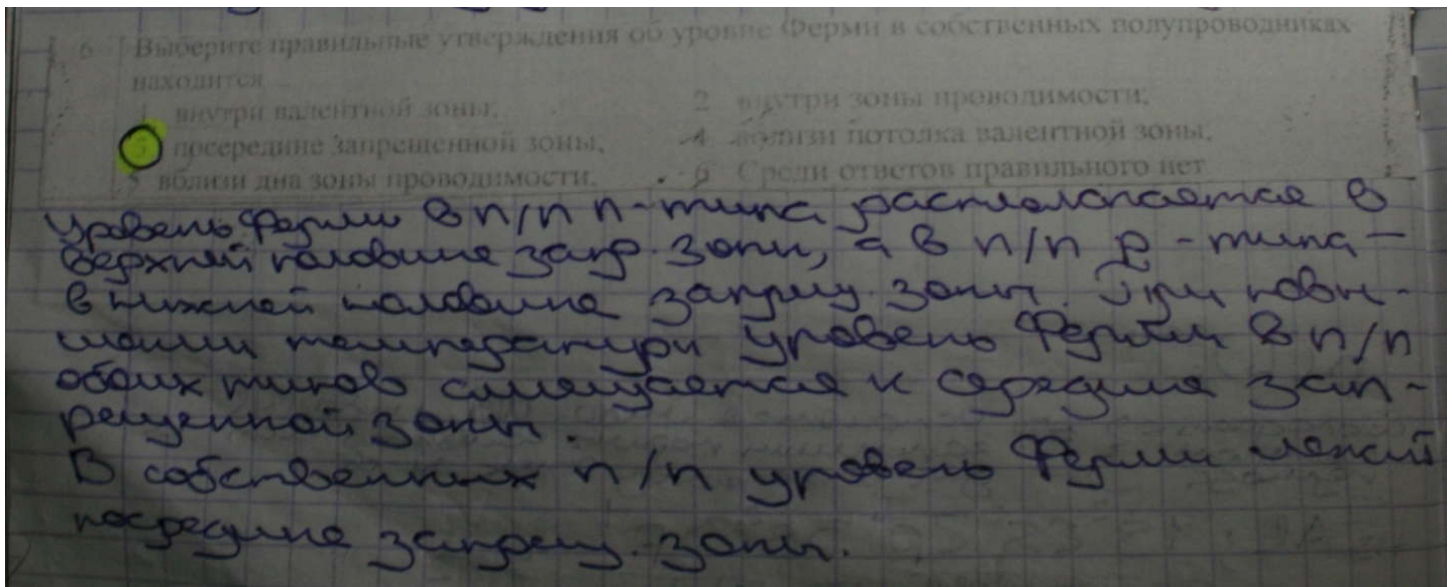 6 Выберите правильные утверждения об уровне Ферми в собственных полупроводниках
находится
1 внутри валентной зоны; 2 внутри зоны проводимости;
3 посередине запрещенной зоны; 4 вблизи потолка валентной зоны;
5 вблизи дна зоны проводимости. 6 Среди ответов правильного нет
Уровень Ферми в п/п n-типа располагается в
верхней половине запр. зоны, а в п/п p-типа —
в нижней половине запрещ. зоны. При повы-
шении температуры уровень Ферми в п/п
обоих типов смещается к середине зап-
рещенной зоны.
В собственных п/п уровень Ферми лежит
посредине запрещ. зоны.